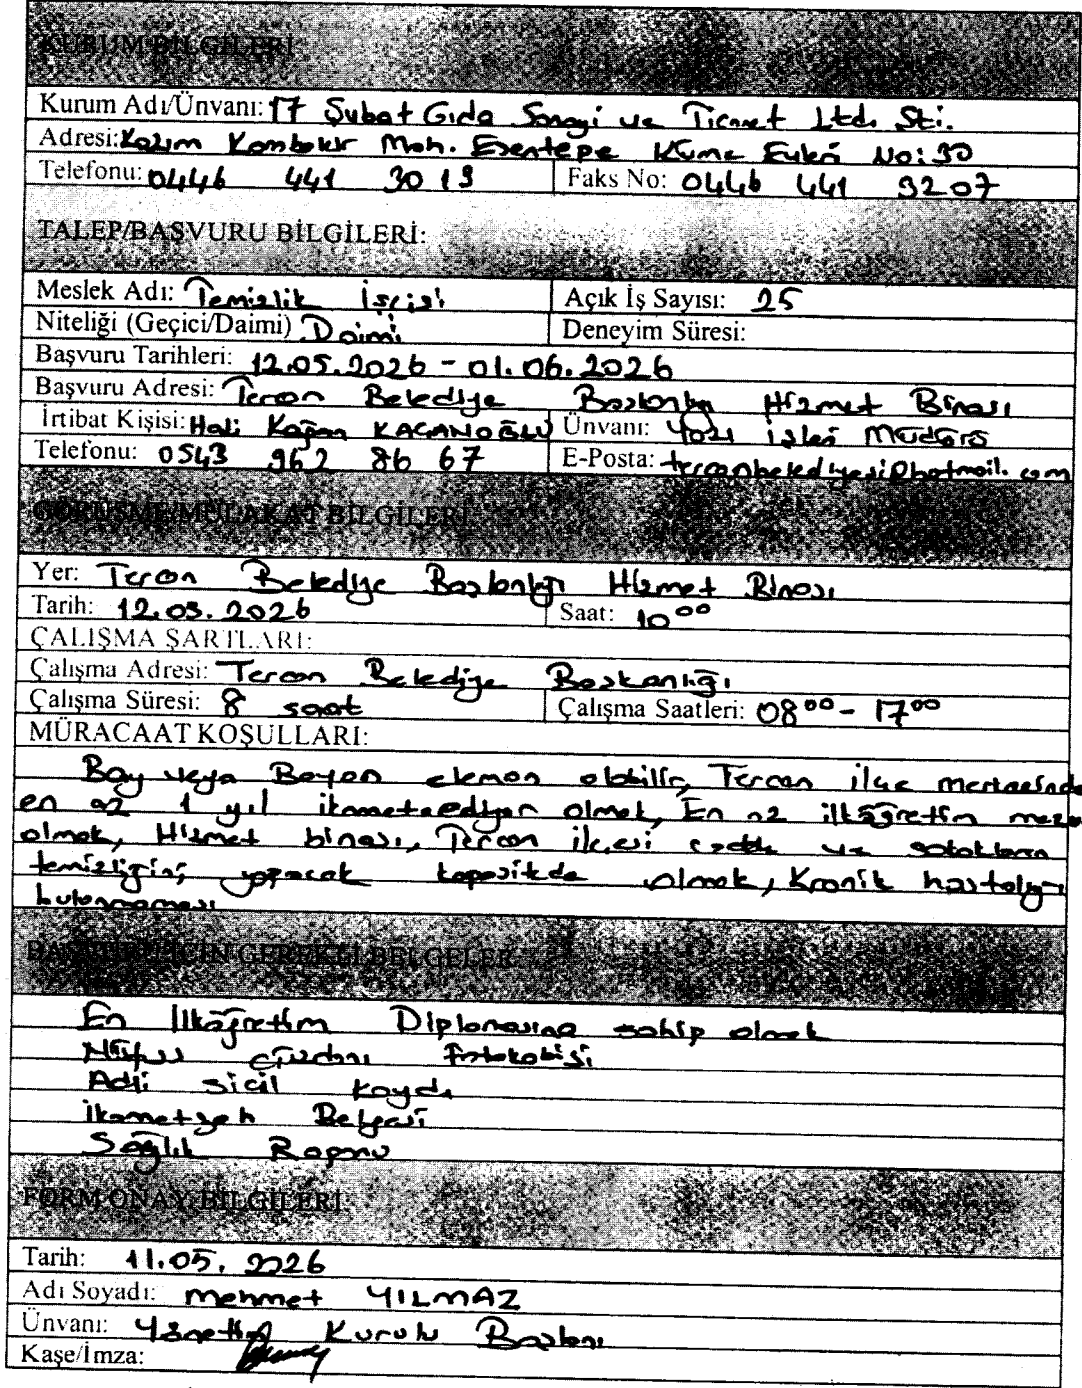 KURUM BİLGİLERİ:
Kurum Adı/Ünvanı: 17 Şubat Gıda Sanayi ve Ticaret Ltd. Şti.
Adresi: Kazım Karabekir Mah. Esentepe Küme Evleri No:30
Telefonu: 0446 441 30 13 Faks No: 0446 441 32 07
TALEP/BAŞVURU BİLGİLERİ:
Meslek Adı: Temizlik İşçisi Açık İş Sayısı: 25
Niteliği (Geçici/Daimi) Daimi Deneyim Süresi:
Başvuru Tarihleri: 12.05.2026 - 01.06.2026
Başvuru Adresi: Tercan Belediye Başkanlığı Hizmet Binası
İrtibat Kişisi: Kağan KAÇANOĞLU Ünvanı: Yazı İşleri Müdürü
Telefonu: 0543 962 86 67 E-Posta: tercanbelediyesi@hotmail.com
GÖRÜŞME/MÜLAKAT BİLGİLERİ:
Yer: Tercan Belediye Başkanlığı Hizmet Binası
Tarih: 12.05.2026 Saat: 10 00
ÇALIŞMA ŞARTLARI:
Çalışma Adresi: Tercan Belediye Başkanlığı
Çalışma Süresi: 8 saat Çalışma Saatleri: 08 00 - 17 00
MÜRACAAT KOŞULLARI:
Bay veya Bayan eleman olabilir, Tercan ilçe merkezinde
en az 1 yıl ikamet ediyor olmak, En az ilköğretim mezu
olmak, Hizmet binası, Tercan ilçesi cadde ve sokakların
temizliğini yapacak kapasitede olmak, Kronik hastalığı
bulunmaması
BAŞVURU İÇİN GEREKLİ BELGELER:
En İlköğretim Diplomasına sahip olmak
Nüfus cüzdanı fotokobisi
Adli sicil kaydı
İkametgah Belgesi
Sağlık Raporu
FORM ONAY BİLGİLERİ:
Tarih: 11.05.2026
Adı Soyadı: Mehmet YILMAZ
Ünvanı: Yönetim Kurulu Başkanı
Kaşe/İmza: